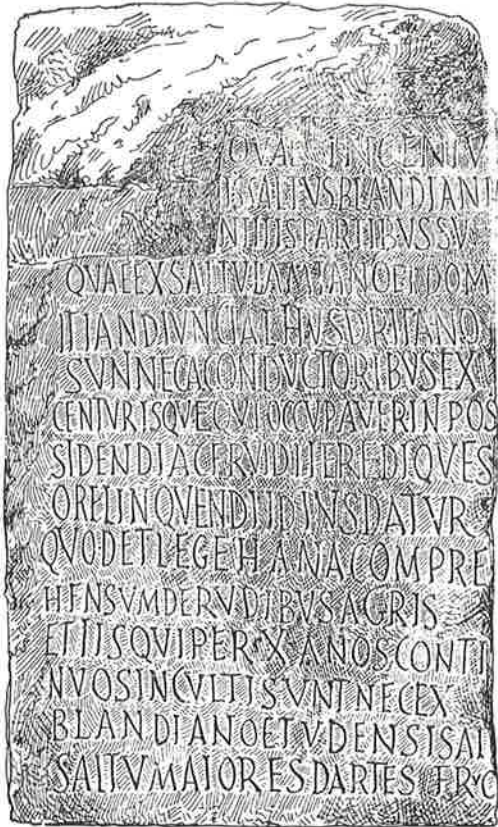 QVAE IN CENTV
IS SALTVS BLANDIANI
N ILLIS PARTIBVS SV
QVAE EX SALTV LAMIANO ET DOM
ITIANO IVNCTAE THVSDRITANO
SVN NEC A CONDVCTORIBVS EX
CENTVRIS QVE CVI OCCVPAVERIN POS
SIDENDI AC FRVI DI EREDIQVE S
O RELINQVENDI ID IVS DATVR
QVOD ET LEGE HANA COMPRE
HENSVM DE RVDIBVS AGRIS
ET IIS QVI PER X ANOS CONTI
NVOS INCVLTI SVNT NEC EX
BLANDIANO ET VDENSI SAI
SALTV MAIORES PARTES FRVC